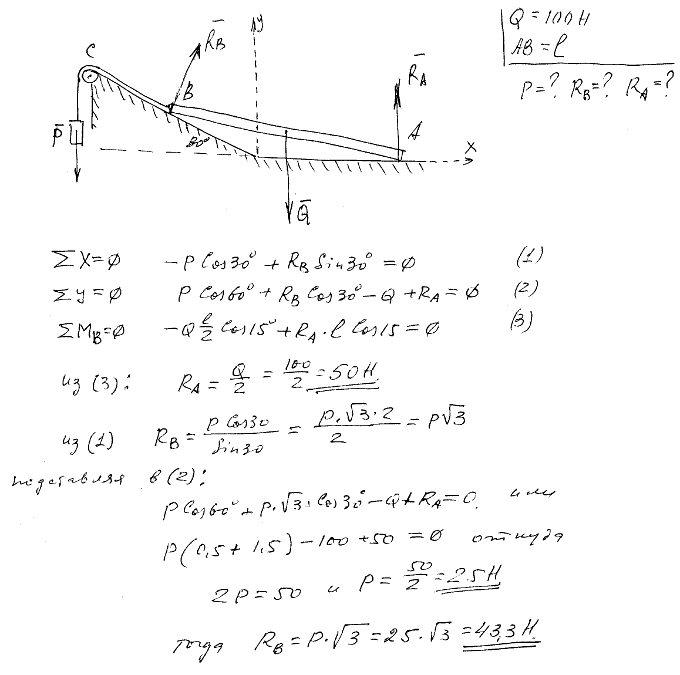 Q = 100 Н
AB = ℓ
P = ? R_B = ? R_A = ?
C
R̅_B
y
R̅_A
B
A
P̅
30°
x
Q̅
ΣX=0 -P Cos30° + R_B Sin30° = 0 (1)
Σy=0 P Cos60° + R_B Cos30° - Q + R_A = 0 (2)
ΣM_B=0 -Q ℓ/2 Cos15° + R_A · ℓ Cos15 = 0 (3)
из (3): R_A = Q/2 = 100/2 = 50 Н
из (1) R_B = P Cos30/Sin30 = P·√3·2/2 = P√3
подставляя в (2):
P Cos60° + P·√3·Cos30° - Q + R_A = 0. или
P(0,5 + 1,5) - 100 + 50 = 0 откуда
2P = 50 и P = 50/2 = 25 Н
тогда R_B = P·√3 = 25·√3 = 43,3 Н.